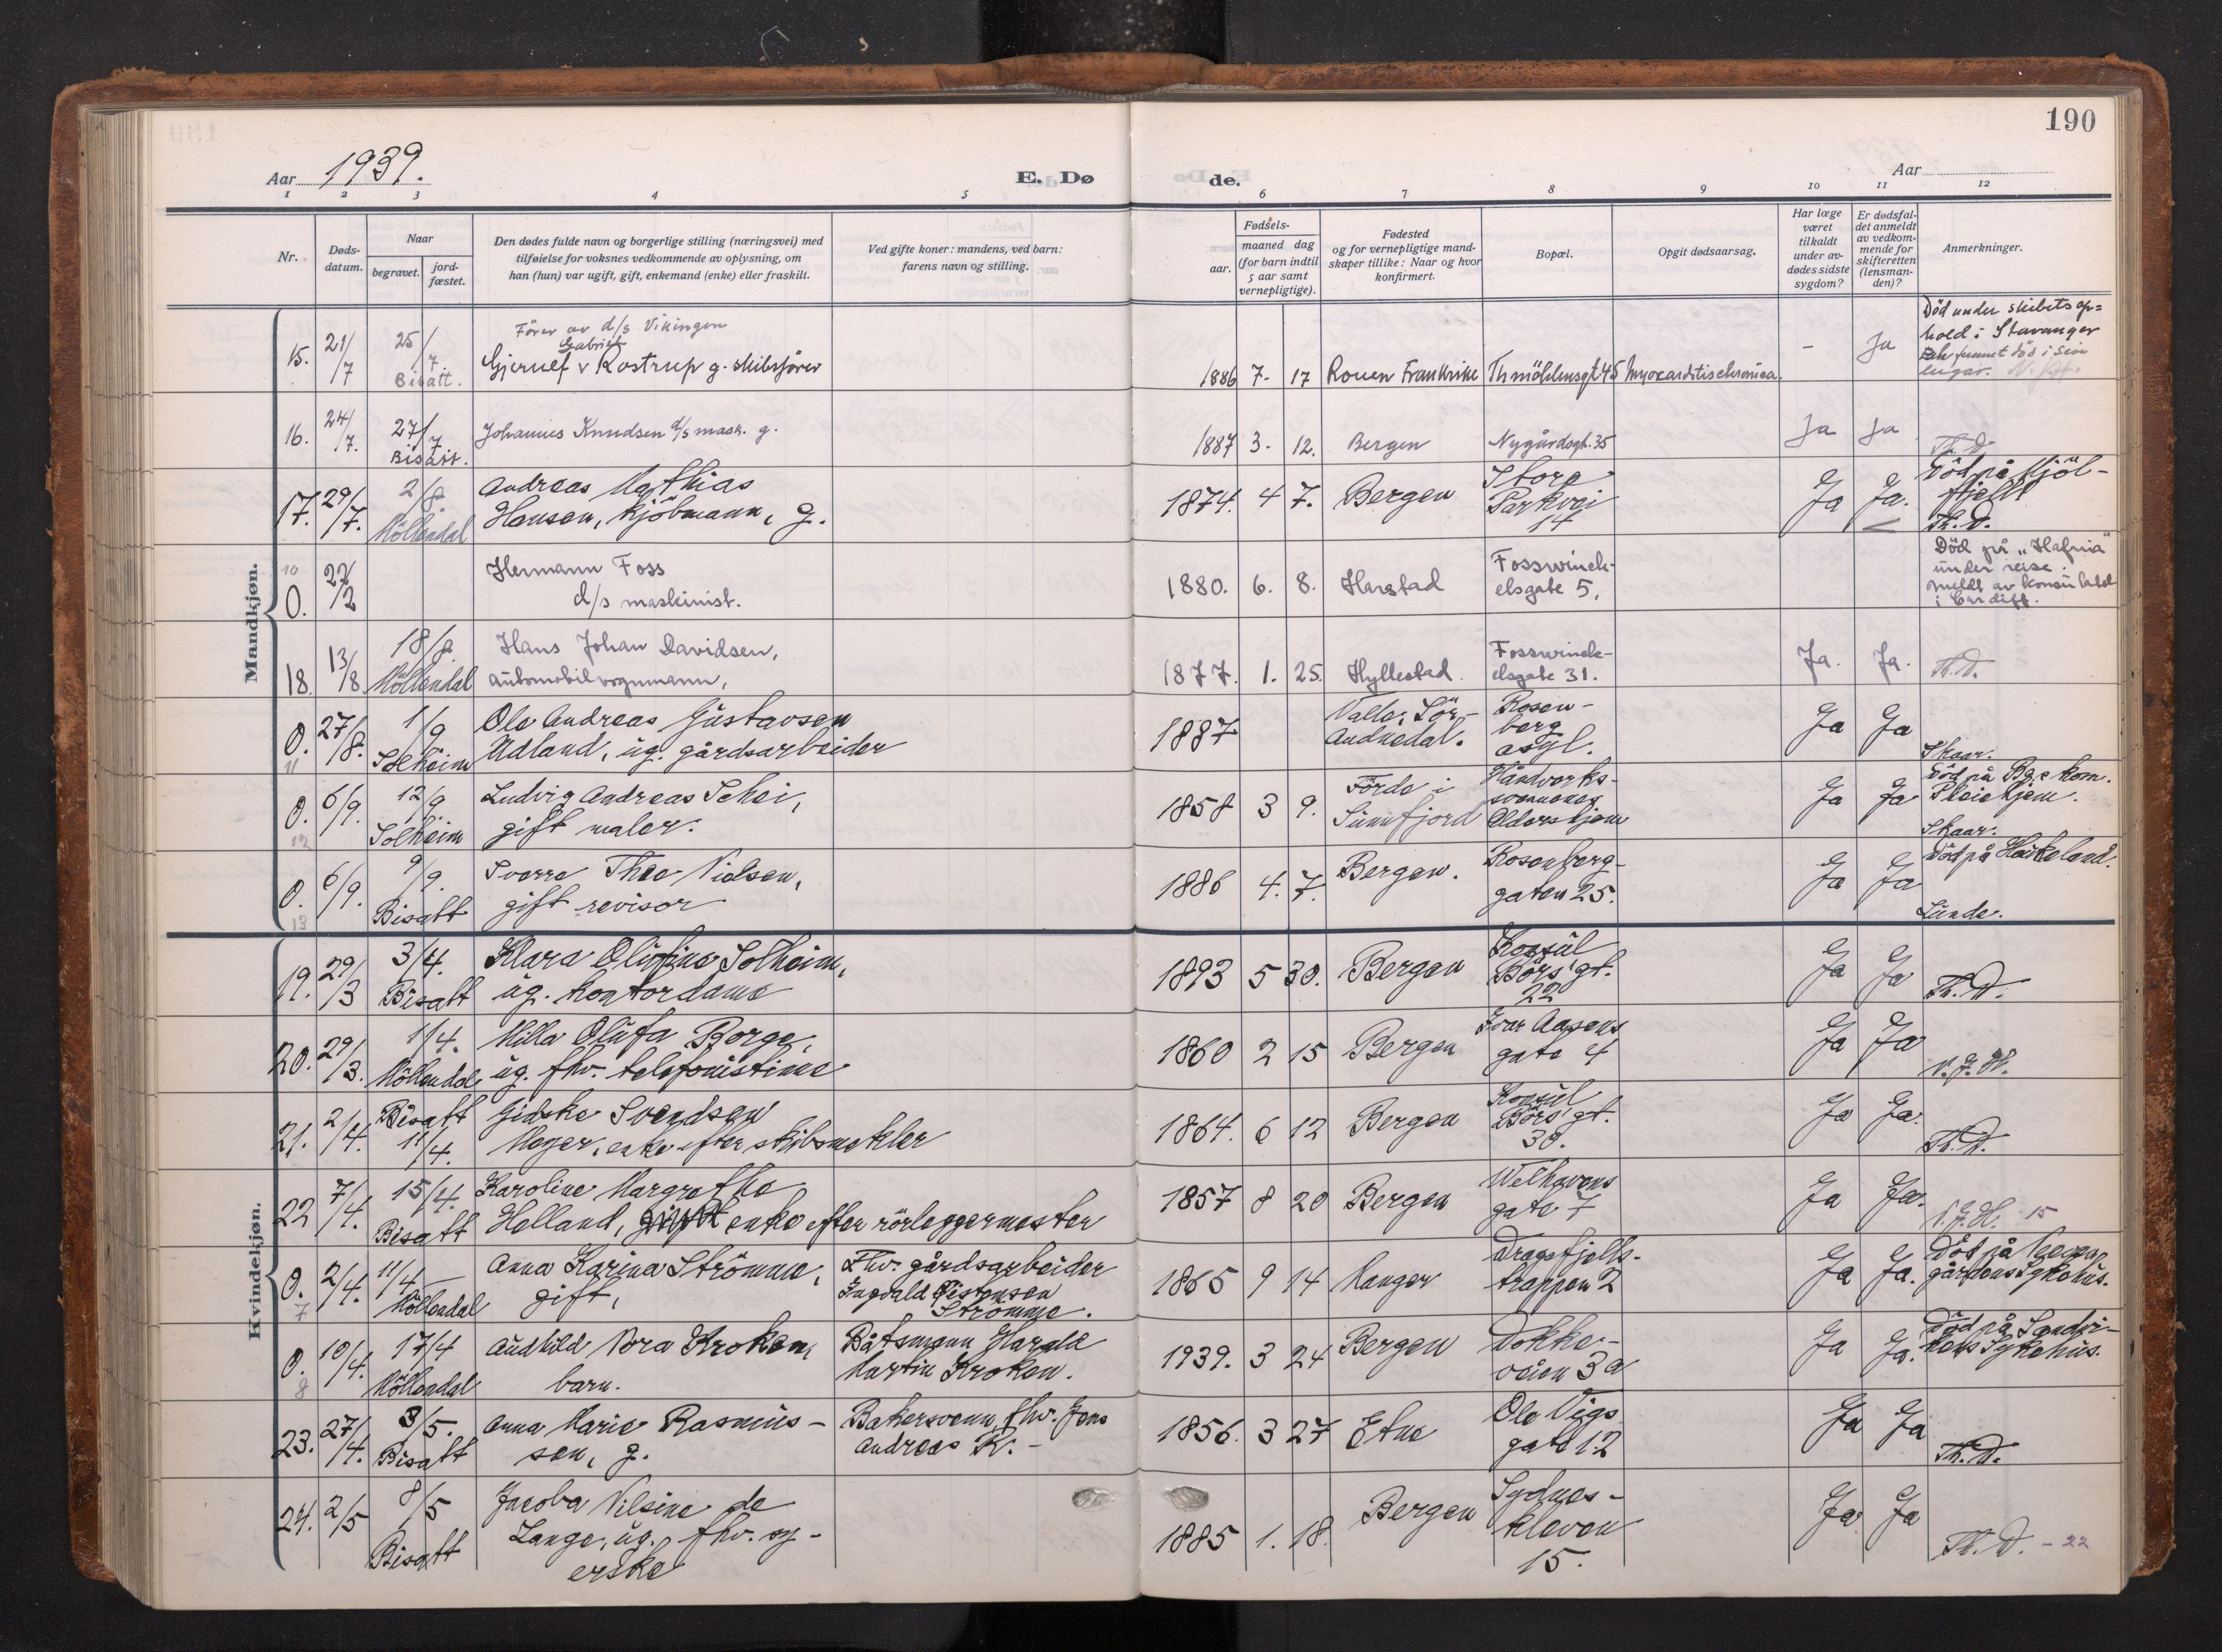 190
Aar 1939.
E. Dø
de.
Aar
1 2 3 4 5 6 7 8 9 10 11 12
Nr.
Døds-
datum.
Naar
begravet.
jord-
fæstet.
Den dødes fulde navn og borgerlige stilling (næringsvei) med
tilføielse for voksnes vedkommende av oplysning, om
han (hun) var ugift, gift, enkemand (enke) eller fraskilt.
Ved gifte koner: mandens, ved barn:
farens navn og stilling.
Fødsels-
aar.
maaned dag
(for barn indtil
5 aar samt
vernepligtige).
Fødested
og for vernepligtige mand-
skaper tillike: Naar og hvor
konfirmert.
Bopæl.
Opgit dødsaarsag.
Har læge
været
tilkaldt
under av-
dødes sidste
sygdom?
Er dødsfal-
det anmeldt
av vedkom-
mende for
skifteretten
(lensman-
den)?
Anmerkninger.
Mandkjøn.
15. 21/7 25/7 Bisatt.
Förer av d/s Vikingen
Gabriel
v Rostrup g. skibsförer
1886 7. 17 Rouen Frankrike Thmöhlensgt 45 Myocarditis chronica. - Ja
Död under skibets op=
hold i Stavanger
funnet död i sin
lugar.
16. 24/7. 27/7 Bisatt.
Johannes Knudsen d/s mask. g.
1887 3. 12. Bergen Nygårdsgt. 35 Ja Ja
Th. D.
17. 29/7. 2/8. Möllendal
Andreas Mathias
Hansen, kjöbmann, g.
1874. 4 7. Bergen
Store
Parkvei
14
Ja Ja.
Död på Mjöl-
fjell
Th. D.
10
0. 22/2
Hermann Foss
d/s maskinist.
1880. 6. 8. Harstad
Fosswinck-
elsgate 5,
Död på "Hafnia"
under reise.
meldt av konsulatet
i Cardiff.
18. 13/8. 18/8. Möllendal
Hans Johan Davidsen,
automobilvognmann,
1877. 1. 25. Hyllestad.
Fosswinck-
elsgate 31.
Ja. Ja. Th. D.
0. 27/8. 1/9 Solheim
11
Ole Andreas Gustavsen
Udland, ug. gårdsarbeider
1887
Valle, Sör-
Audnedal.
Rosen-
berg
asyl.
Ja Ja
Skaar.
0. 6/9. 12/9. Solheim
12
Ludvig Andreas Schei,
gift maler.
1858 3 9.
Förde i
Sunnfjord
Håndverks-
svennenes
Aldershjem
Ja Ja
Död på Bg.s kom.
Pleiehjem.
Skaar.
0. 6/9. 9/9. Bisatt
13
Sverre Theo Nielsen,
gift revisor
1886 4. 7. Bergen.
Rosenberg-
gaten 25.
Ja Ja
Död på Haukeland.
Lunde.
Kvindekjøn.
19. 29/3 3/4. Bisatt
Klara Olufine Solheim,
ug. kontordame
1893 5 30. Bergen
Konsul
Börs gt.
22
Ja Ja
Th. D.
20. 29/3. 1/4. Möllendal
Milla Olufa Borge,
ug. fhv. telefonistinne
1860 2 15 Bergen
Ivar Aasens
gate 4
Ja Ja
21. 2/4. Bisatt 11/4.
Gidske Svendsen
Meyer, enke efter skibsmekler
1864. 6 12 Bergen
Konsul
Börs gt.
30.
Ja Ja.
Th. D.
22 7/4. 15/4. Bisatt
Karoline Margrethe
Helland, gift enke efter rörleggermester
1857 8 20 Bergen
Welhavens
gate 7
Ja Ja.
15
0. 2/4. 11/4 Möllendal
7
Anna Karina Strömme,
gift,
Fhv. gårdsarbeider
Ingvald
Strömme.
1865 9 14 Manger
Dragefjells-
trappen 2
Ja Ja.
Död på
gårdens Sykehus.
0. 10/4. 17/4 Möllendal
8
Audhild Nora Kroken,
barn.
Båtsmann Harald
Martin Kroken.
1939. 3 24 Bergen
Dokke-
veien 3a
Ja Ja.
Död på Sandvi-
kens Sykehus.
23. 27/4. 3/5. Bisatt
Anna Marie Rasmus-
sen, g.
Bakersvenn, fhv. Jens
Andreas R. -
1856. 3 27 Etne
Ole Vigs
gate 12
Ja Ja
Th. D.
24. 2/5 8/5 Bisatt
Jacoba Nilsine de
Lange, ug. fhv. sy-
erske
1885 1. 18. Bergen
Sydnes-
kleven
15.
Ja Ja
Th. D. - 22